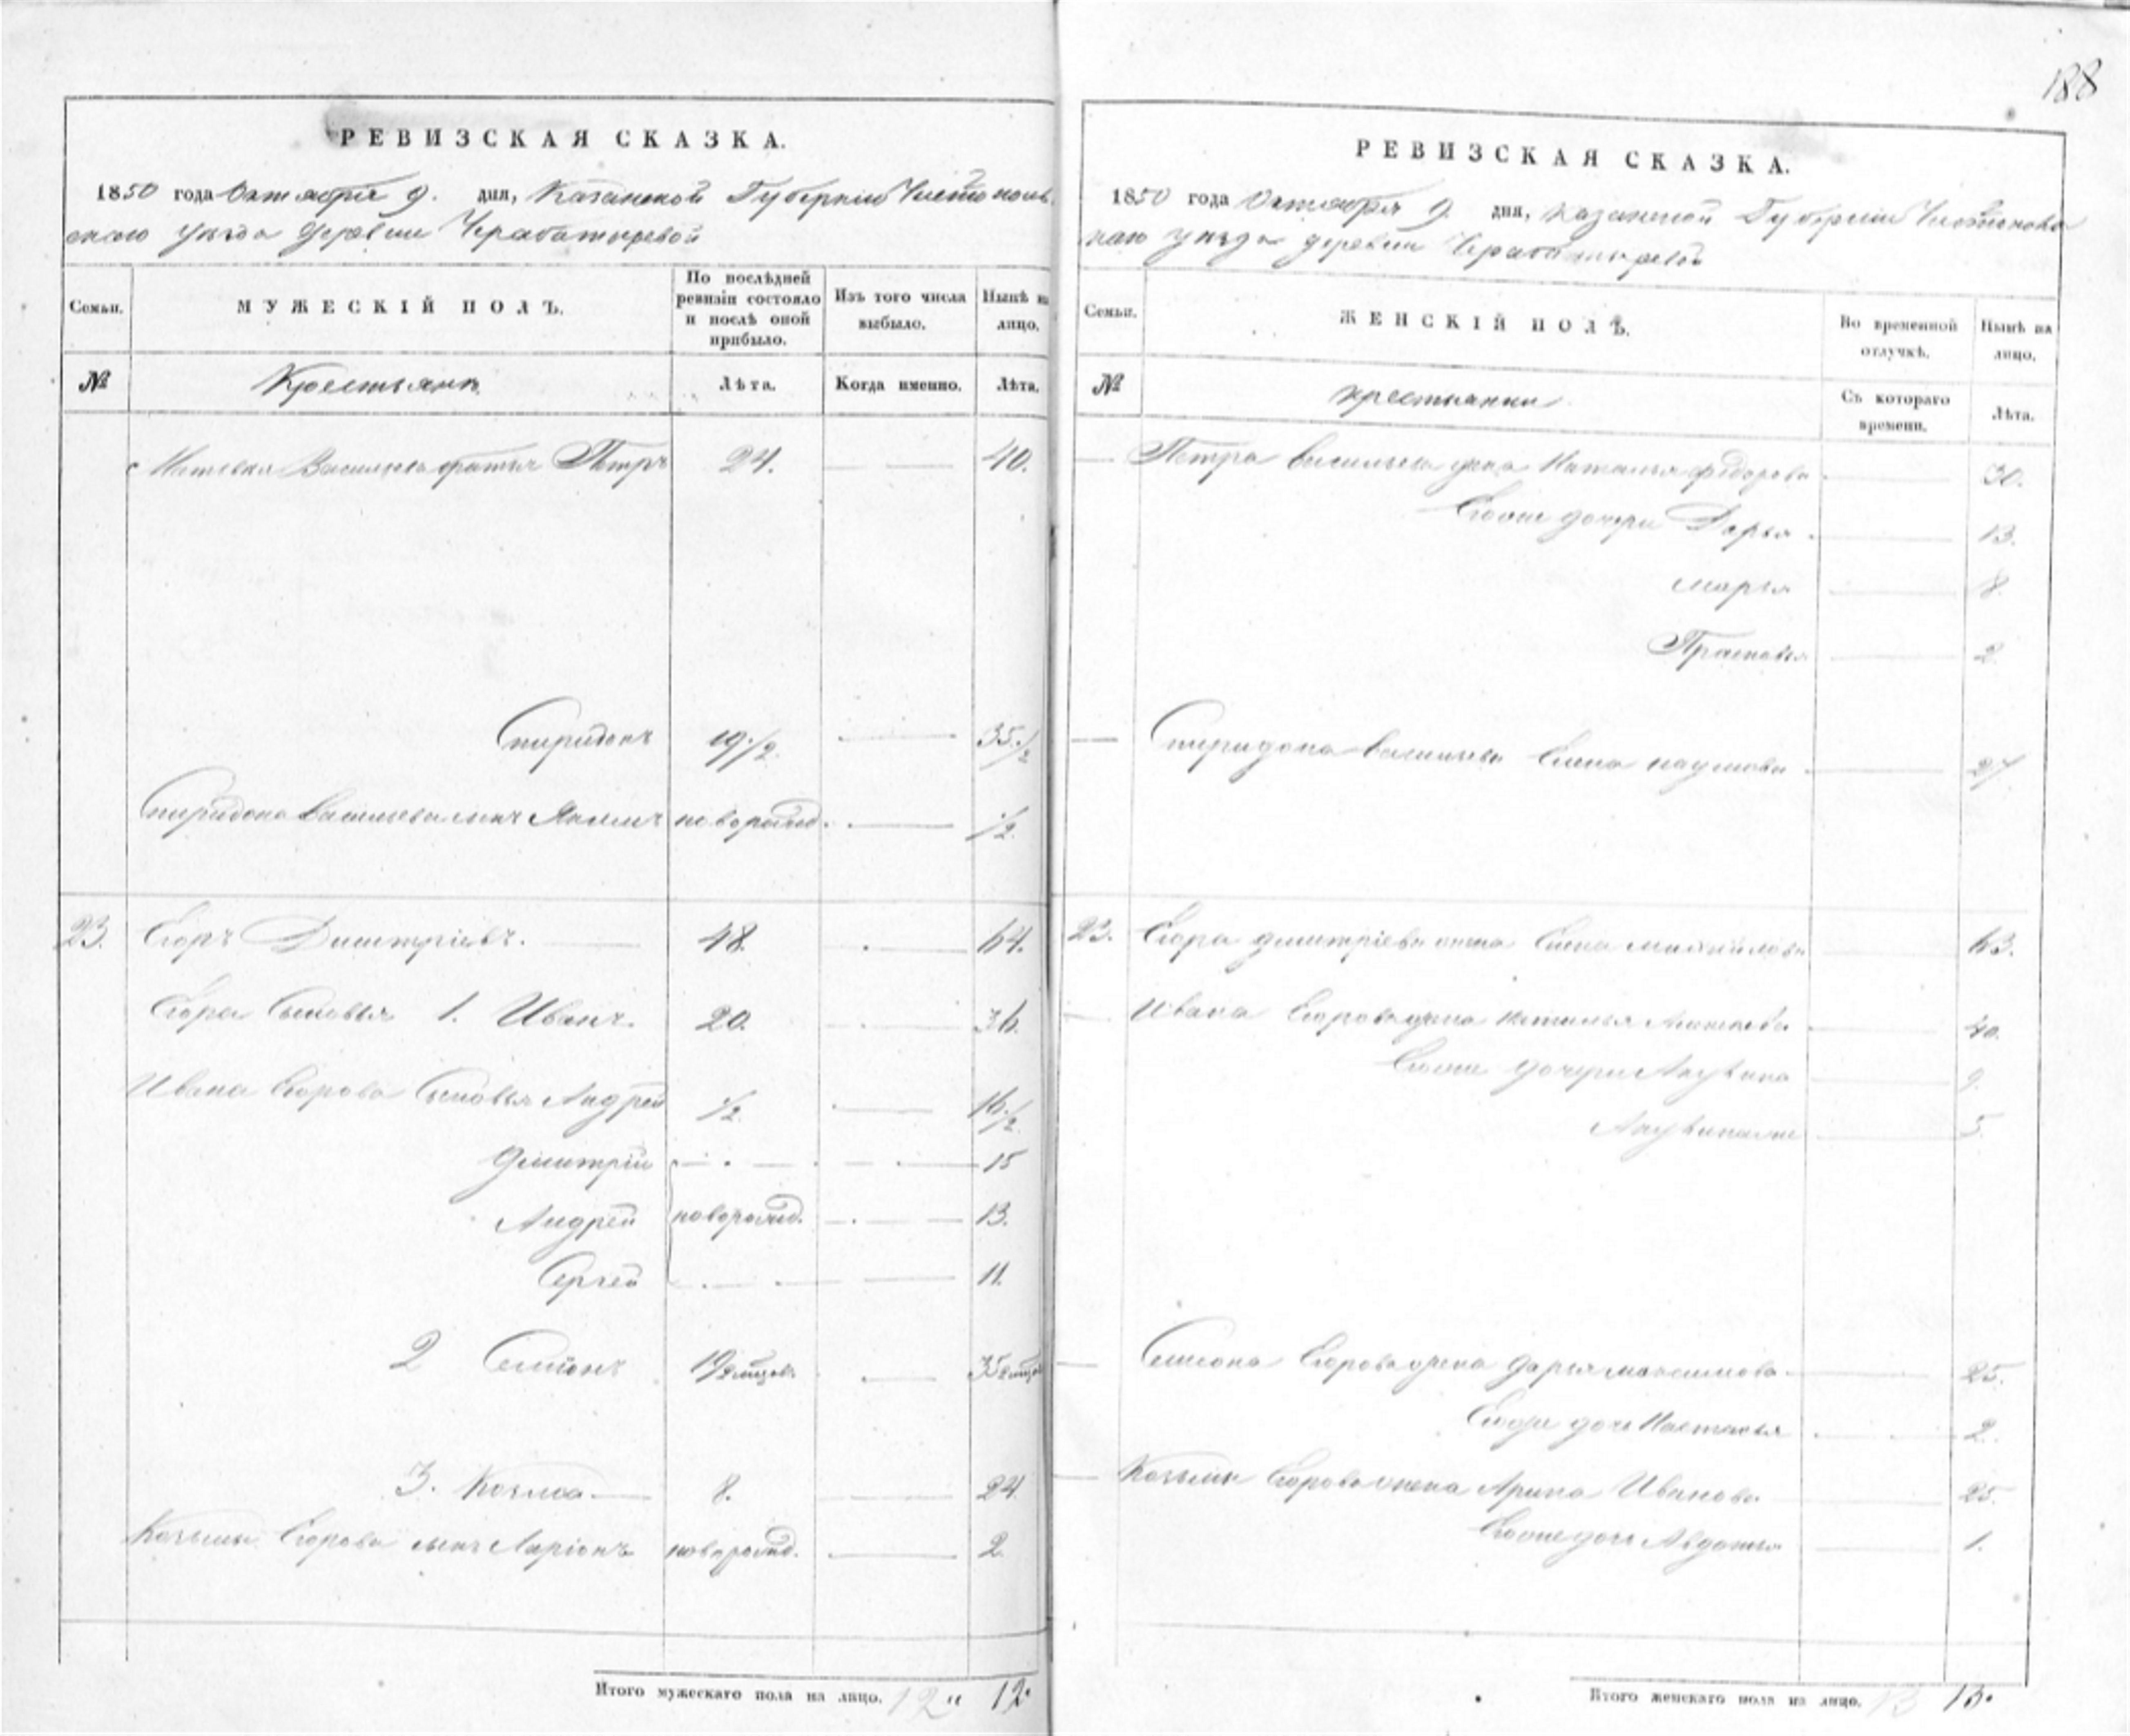 188
РЕВИЗСКАЯ СКАЗКА.
1850 года Октября 9. дня, Казанской Губерніи Чистополь
скаго уѣзда деревни Черабатыревой
Семьи.
МУЖЕСКІЙ ПОЛЪ.
По послѣдней ревизіи состояло и послѣ оной прибыло.
Изъ того числа выбыло.
Нынѣ на лицо.
№
Крестьянъ
Лѣта.
Когда именно.
Лѣта.
Васильева братья Петръ 24. 40.
Спиридонъ 19 1/2. 35 1/2
Спиридона Васильева сынъ новорожд. 1/2.
23. Егоръ Дмитріевъ. 48. 64.
Егора Сыновья 1. Иванъ. 20. 36.
Ивана Егорова Сыновья Андрей 1/2. 16 1/2
Дмитрій 15
Андрей новорожд. 13.
Сергей 11.
2 Семёнъ 19 2 мѣсяц. 35 2 мѣсяц
3. Козма 8. 24.
Козьмы Егорова сынъ Ларіонъ новорожд. 2.
Итого мужескаго пола на лицо. 12 " 12.
РЕВИЗСКАЯ СКАЗКА.
1850 года Октября 9. дня, Казанской Губерніи Чистопольс
каго уѣзда деревни Черабатыревой
Семьи.
ЖЕНСКІЙ ПОЛЪ.
Во временной отлучкѣ.
Нынѣ на лицо.
№
крестьянки
Съ котораго времени.
Лѣта.
Петра Васильева жена Наталья Федорова 30.
Егоже дочери Дарья 13.
Марья 8.
Прасковья 2.
Спиридона Васильева Елена Наумова 27
23. Егора Дмитріева жена Елена Михайлова 63.
Ивана Егорова жена Наталья 40.
Егоже дочери Акулина 9.
5.
Семёна Егорова жена Дарья Максимова 25.
Егоже дочь Настасья 2.
Козьмы Егорова жена Арина Иванова 25.
Егоже дочь Авдотья 1.
Итого женскаго пола на лицо. 13 13.